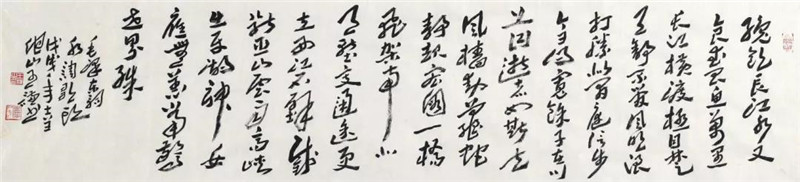 纔飲長江水又
食武昌魚萬里
長江橫渡極目楚
天舒不管風吹浪
打勝似閒庭信步
今日得寬餘子在川
上曰逝者如斯夫
風檣動龜蛇
靜起宏圖一橋
飛架南北
天塹變通途更
立西江石壁截
斷巫山雲雨高峽
出平湖神女
應無恙當驚
世界殊
毛澤東詞
水調歌頭
戊戌年